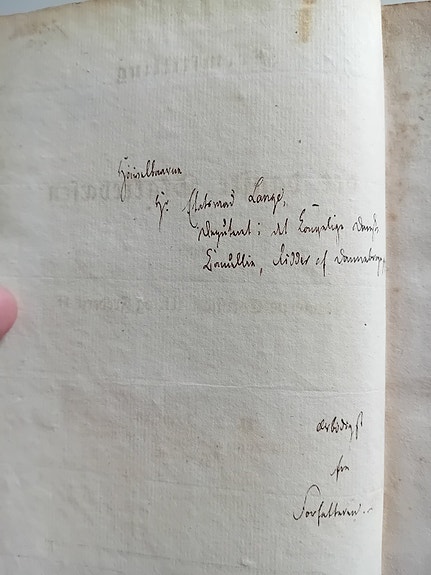 Høivelbaarne
Hr. Etatsraad Lange,
Deputeret i det Kongelige Danske
Cancellie, Ridder af Dannebroge
ærbødigst
fra
Forfatteren.